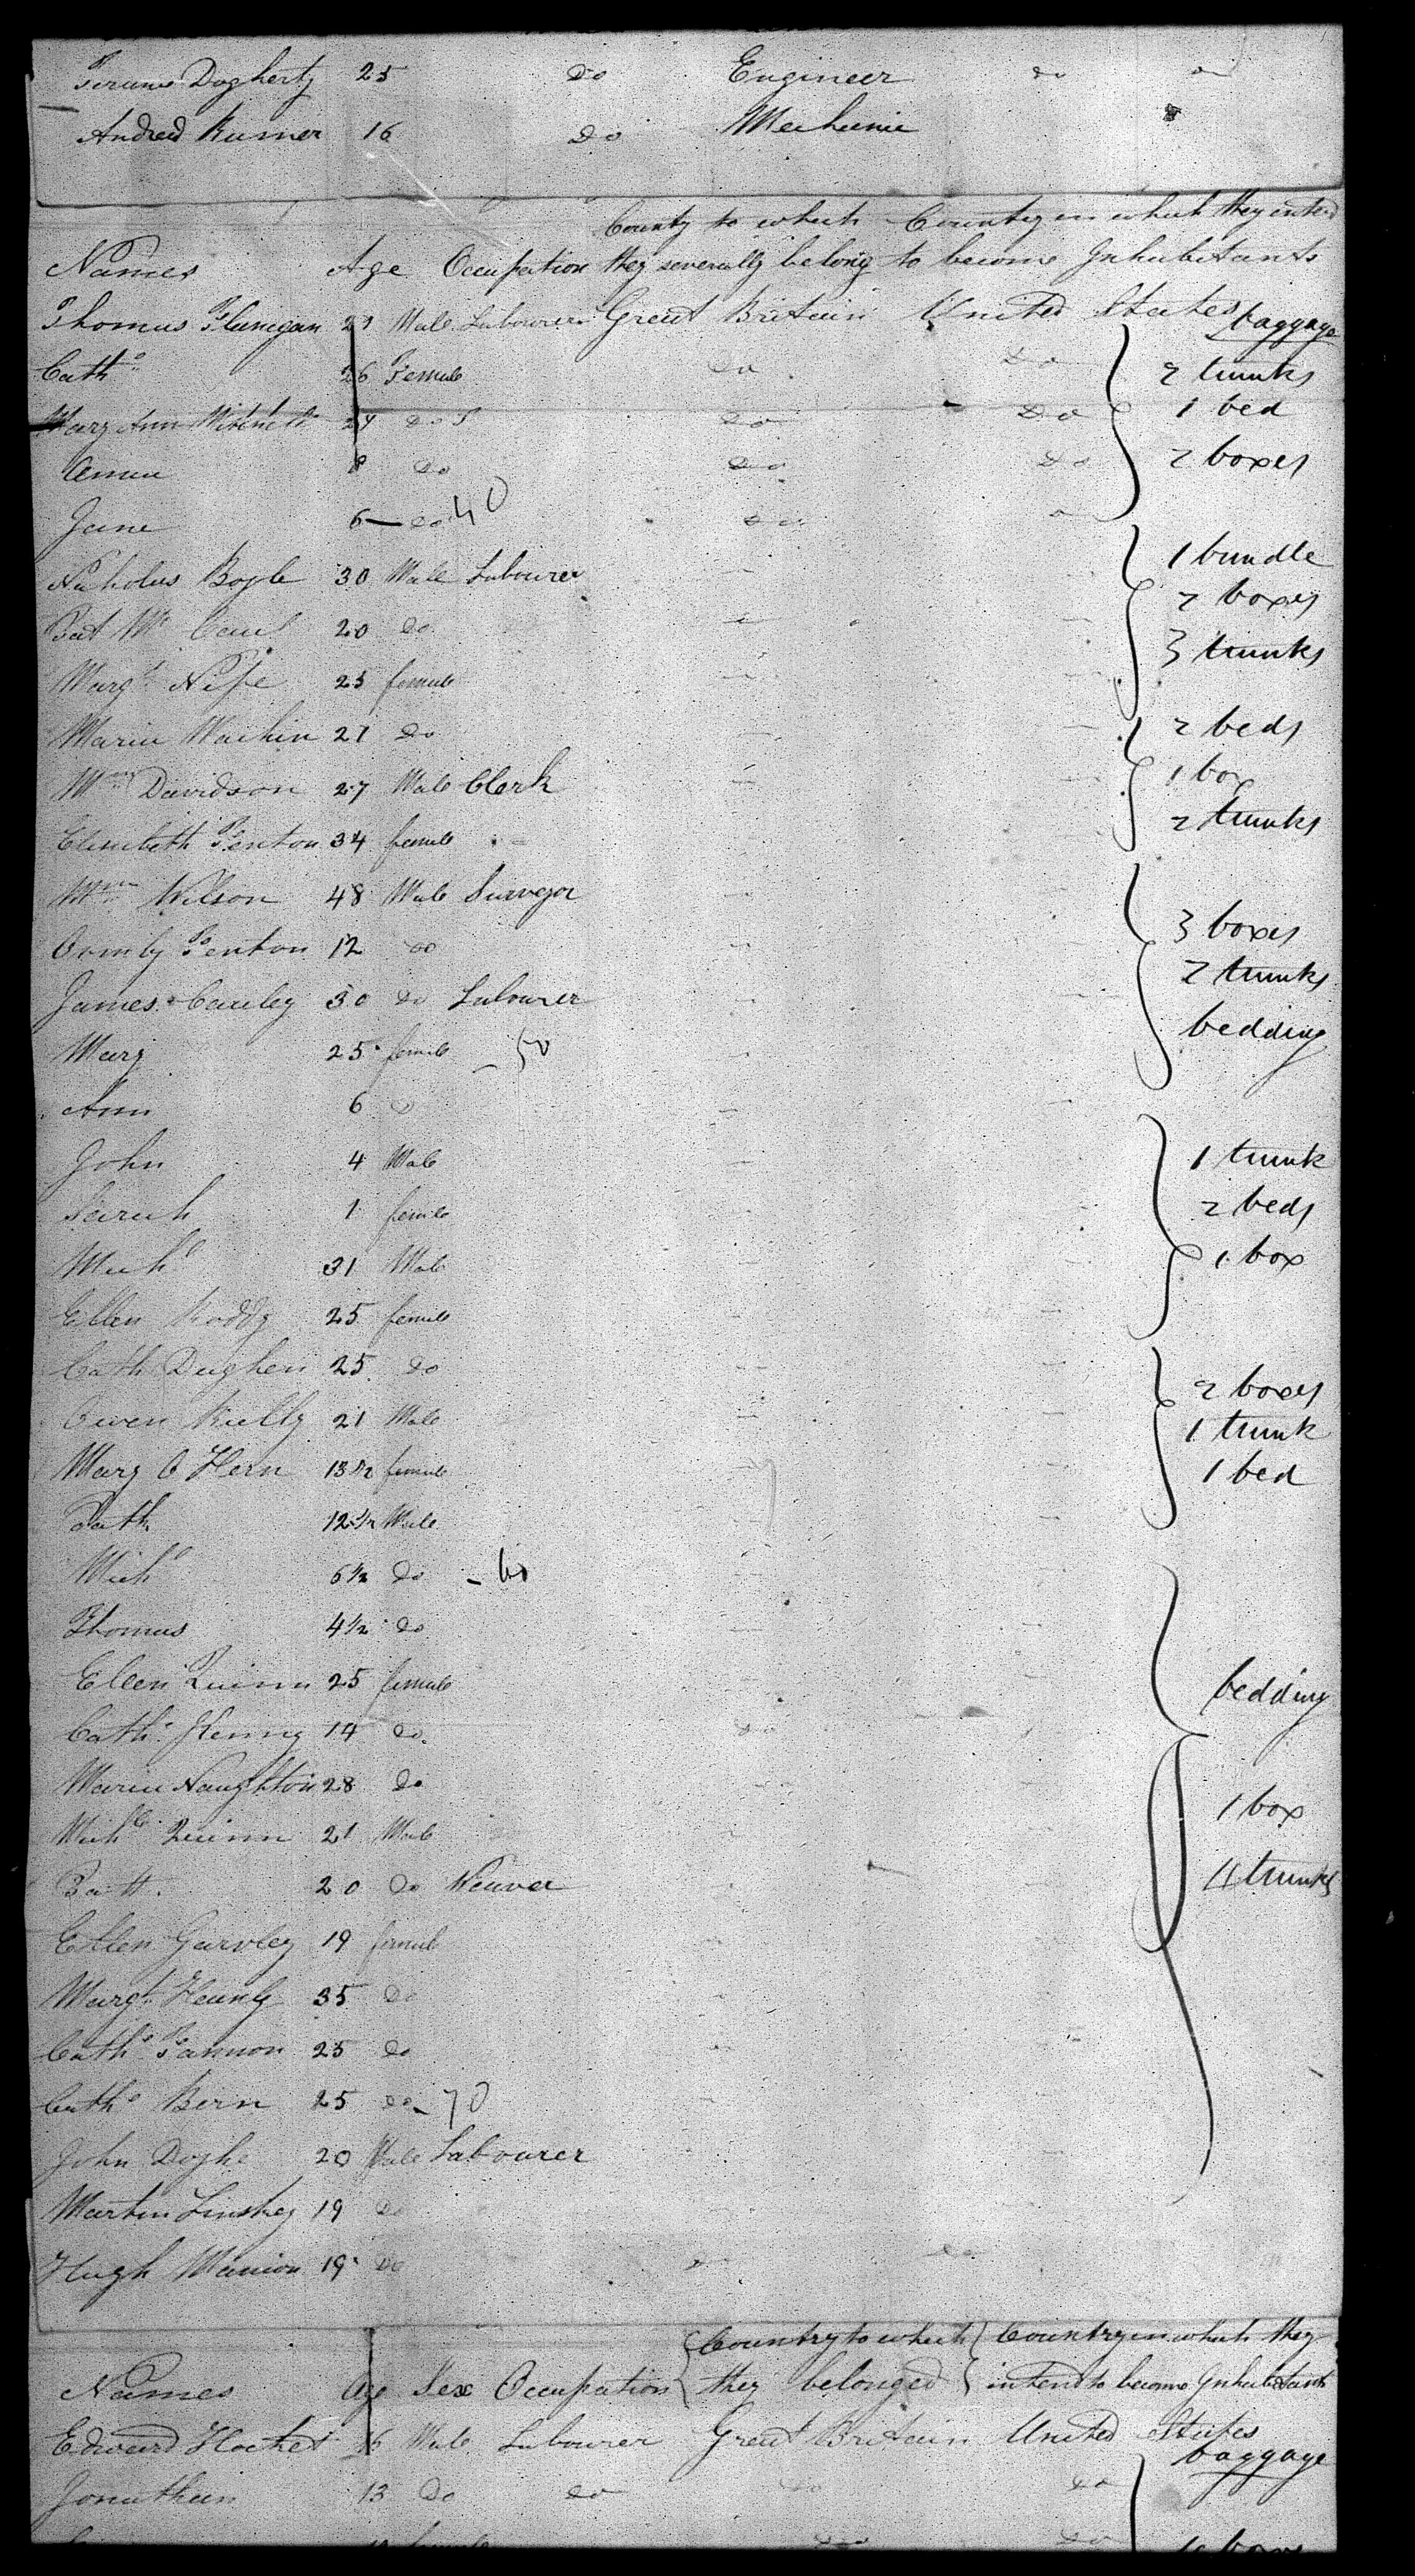 Dogherty 25 Do Engineer do do
Andrew 16 Do Mechanic
County to which Country in which they intend
Names Age Occupation they severally belong to become Inhabitants
Thomas Flanigan Male Labourer Great Britain United States baggage
Cath 26 Female Do Do 2 trunks
Mary Ann Mitchell 24 do Do Do 1 bed
8 do Do Do 2 boxes
Jane 6 — do 40 Do
1 bundle
Nicholas Boyle 30 Male Labourer
2 boxes
Pat Mc 20 do
3 trunks
Margt 25 female
Maria 21 do 2 beds
Wm Davidson 27 Male Clerk 1 box
Elizabeth Fenton 34 female 2 trunks
Wm Wilson 48 Male Surveyor
3 boxes
Ormby Fenton 12 do
2 trunks
James Cauley 30 do Labourer
bedding
Mary 25 female – 50
Ann 6 do
John 4 Male 1 trunk
Sarah 1 female 2 beds
Michl 31 Male 1 box
Ellen Roddy 25 female
Cath Dughen 25 do
2 boxes
Owen Kelly 21 Male
1 trunk
Mary O Hern 13 1/2 female 1 bed
Path 12 1/2 Male
Michl 6 1/2 do – 60
Thomas 4 1/2 do
Ellen Quinn 25 female bedding
Cath 14 do Do
Maria Naughton 28 do
1 box
Michl Quinn 21 Male
Patt. 20 do Weaver 4 trunks
Ellen Garvley 19 female
Margt 35 do
Cath Fannon 25 do
Cath Birn 25 do – 70
John 20 Male Labourer
Martin Linskey 19 do
Hugh Manion 19 do
Country to which Country in which they
Names Age Sex Occupation they belonged intend to become Inhabitants
Edward Hacket 16 Male Labourer Great Britain United States
baggage
Jonathan 13 Do do do do